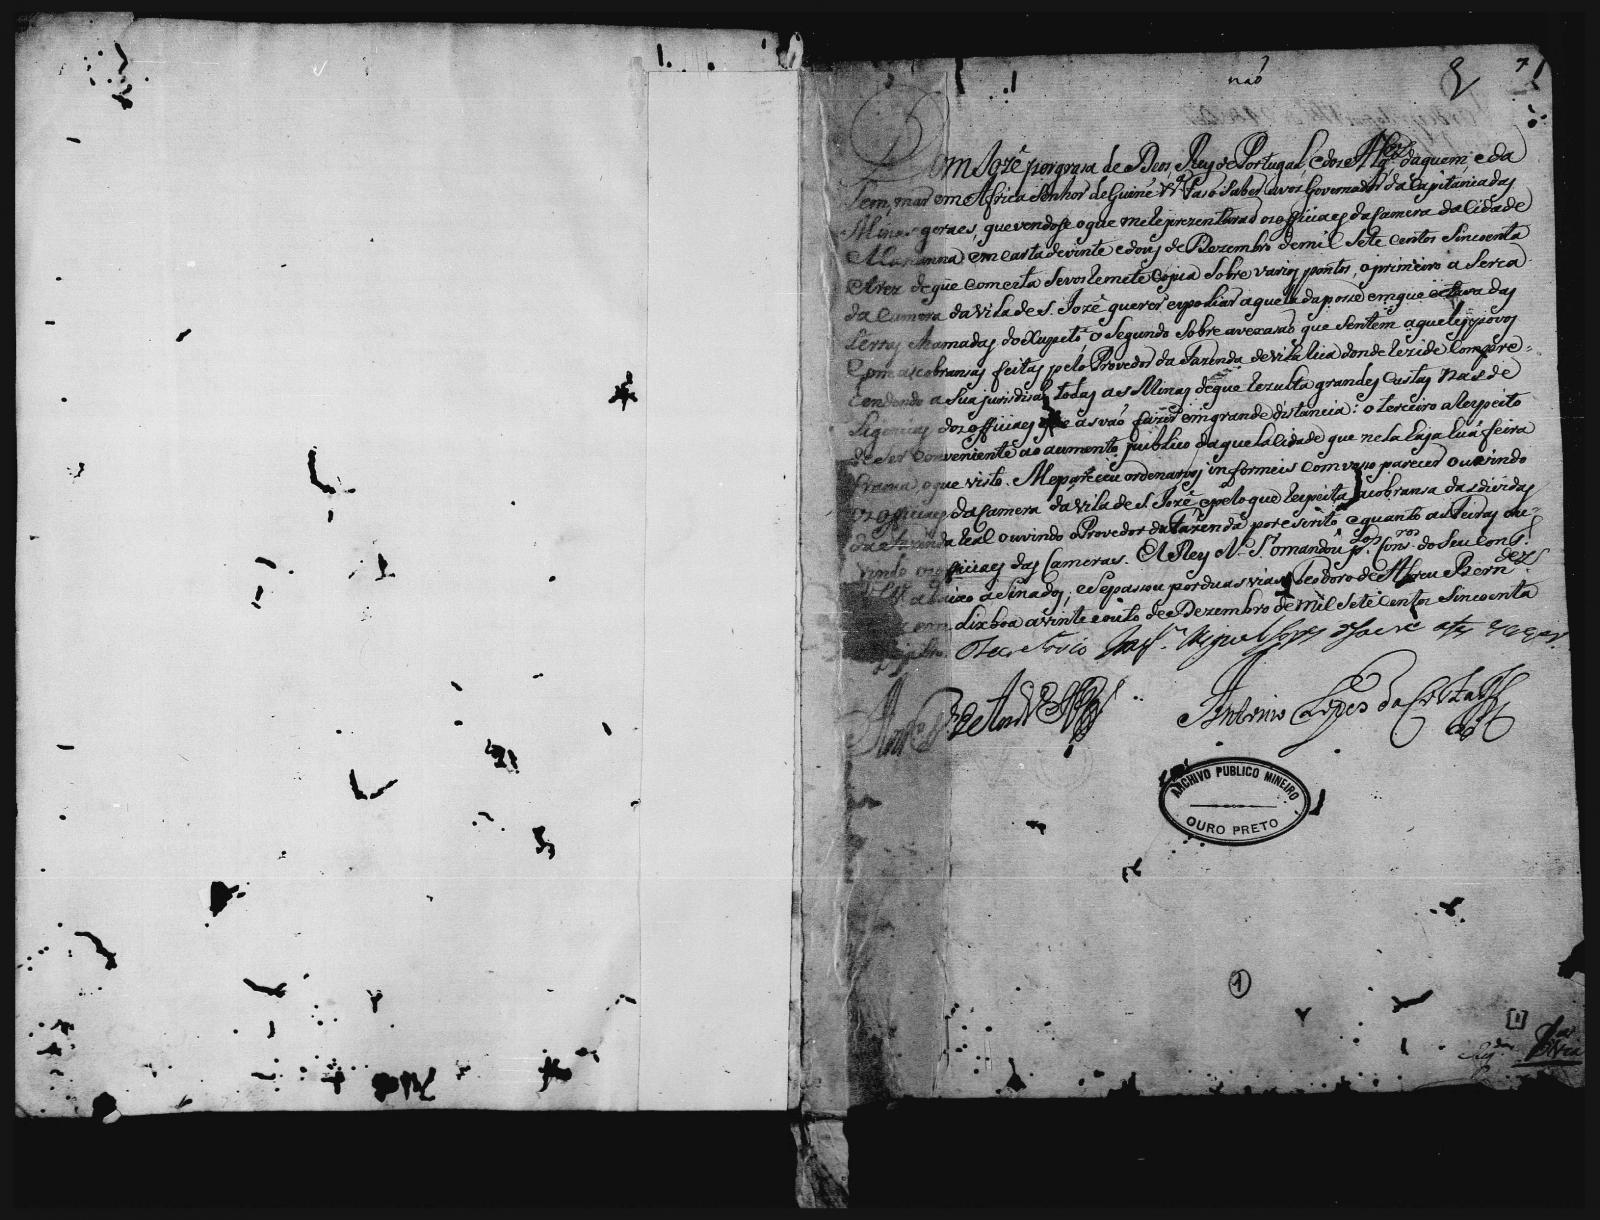 não
7
Dom Jozê por grasa de Deos, Rey de Portugal, e dos Alg.es daquem, e da
lem, mar em Africa Senhor de Guine Vr.ª Faso Saber avós Governador da Capitánia das
Minas geraes, que vendose o que me Reprezentáraõ os officiaes da Camera da Cidade
Marianna em carta de vinte e dous de Dezembro de mil Sete centos Sincoenta
e tres de que com esta Sevos Remete Copia Sobre varios pontos, o primeiro a Serca
da Camera da Vila de S. Jozê querer expoliar aquela da pose em que estava das
terras chamadas do Xupetó o Segundo Sobre avexasaõ que Sentem aqueles povos
Com as cobransas feitas pelo Provedor da Fazenda de Vila Rica donde Rezide Compre=
endendo a Sua jurisdisaõ todas as Minas de que Rezulta grandes custas nas de
Ligencias dos officiaes que as vaõ fazer em grande distancia: o terceiro a Respeito
de Ser Conveniente ao aumento publico daquela Cidade que nela haja huá feira
franca, o que visto. Me pareceu ordenarvos informeis com voso parecer ouvindo
os officiaes da Camera da Vila de S. Jozê, e pelo que Respeita, a cobransa das dividas
da Fazenda Real ouvindo o Provedor da Fazenda por escrito, e quanto as Feiras ou=
vindo os officiaes das Cameras. El Rey N. S.r o mandou p.los Cons.ros do Seu Cons.º
Ultr.º abaixo asinados, e Se pasou por duas vias. Teodoro de Abreu Bern.dez
a fes em Lixboa a vinte e outo de Dezembro de mil Sete centos Sincoenta
O Secretr.º Miguel Lopes de Lavre a fez escrever
Antonio Lopes da Costa
ARCHIVO PUBLICO MINEIRO
OURO PRETO
1
[1]
1.ª via